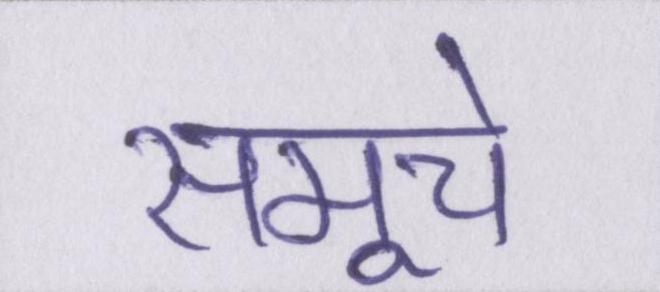 समूचे